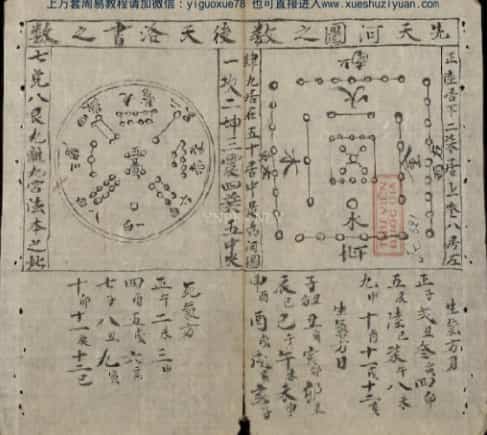 上万套周易教程请加微信：yiguoxue78 也可直接进入www.xueshuziyuan.com
先天河圖之數
後天洛書之數
正陸居下二柒居上叁八居左
肆九居右五十居中是為河圖
一坎二坤三震四巽五中央
七兌八艮九離九宮法本之此
火
水
木
金
生氣方月
正子 弍丑 叁寅 四卯
五辰 陸巳 柒午 八未
九申 十酉 十一戌 十二亥
生氣方日
死氣方
正午 二未 三申
四酉 五戌 六亥
七子 八丑 九寅
十卯 十一辰 十二巳
THƯ VIỆN
QUỐC GIA